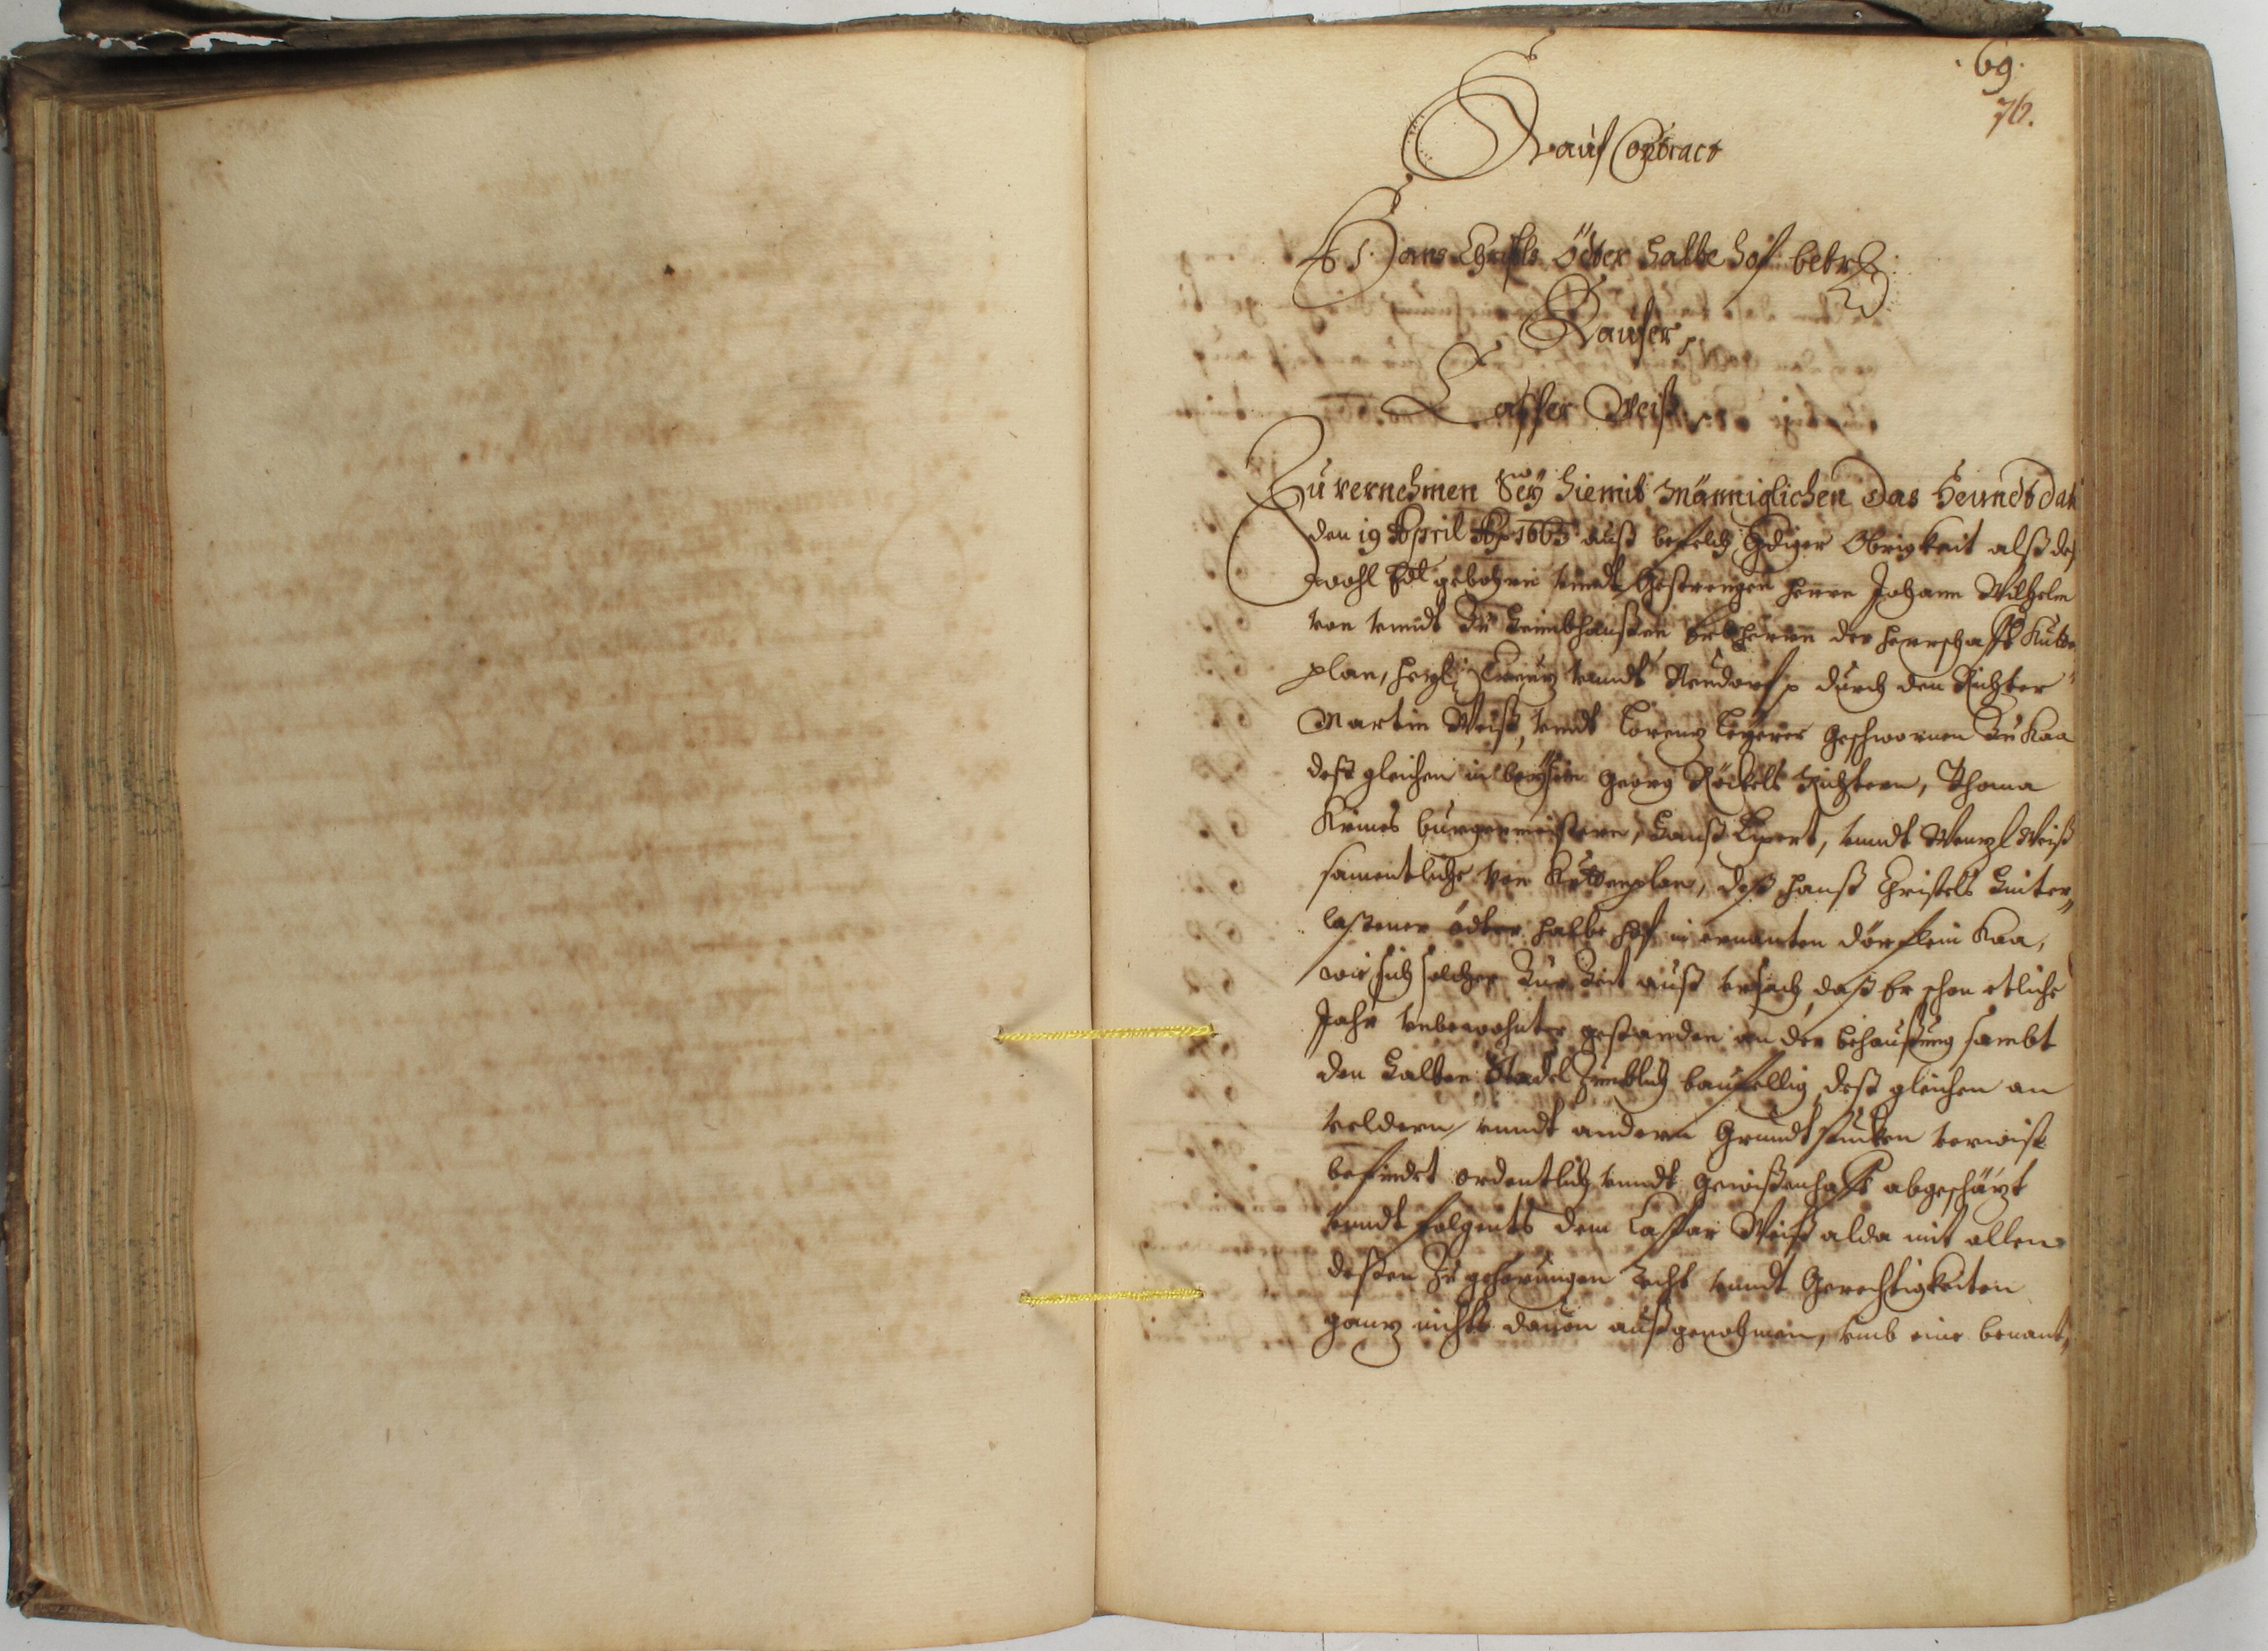 69.
76.
Kauf Contract
Hans Christls öeter halbe hof betr:
Kaufer
Casper Weiß
Zu vernehmen Seÿ hiemit Männiglichen das Heundt dato
den 19 April Ao 1663 auß befelch Gdiger Obrigkeit alß deß
wohl Edl gebohrn vndt Gestrengen Herrn Johann Wilhelm
von vndt Zu Heimbhaußen Erbherrn der Herrschafft Kutten
plan, Heyl: Creuz vnndt Neudorf p durch den Richter
Martin Weiß, vndt Lorenz Geschwornen Zu Kaa
deßgleichen in beÿsein Georg Röckels Richtern, Thoma
Krines burgermeistern, Hanß Lipert, vnndt Wenzl Weiß
samentliche von Kuttenplan, deß Hanß Christels hinter,,
laßener ödter halbe Hof in ernanten dörflein Kaa,
wie sich solcher Zur Zeit auß vrsach, daß Er schon etliche
Jahr vnbewohnter gestanden an der behaußung sambt
den halben Stadel Zimblich baufellig, deß gleichen an
veldern vnndt andern Grundtstucken verwist
befindet ordentlich vnndt gewißenhafft abgeschäzt
vnndt folgents dem Caspar Weiß alda mit allen
deßen Zugehörungen Recht vnndt Gerechtigkeiten
ganz nichts dauon außgenohmen, vmb eine benant,,